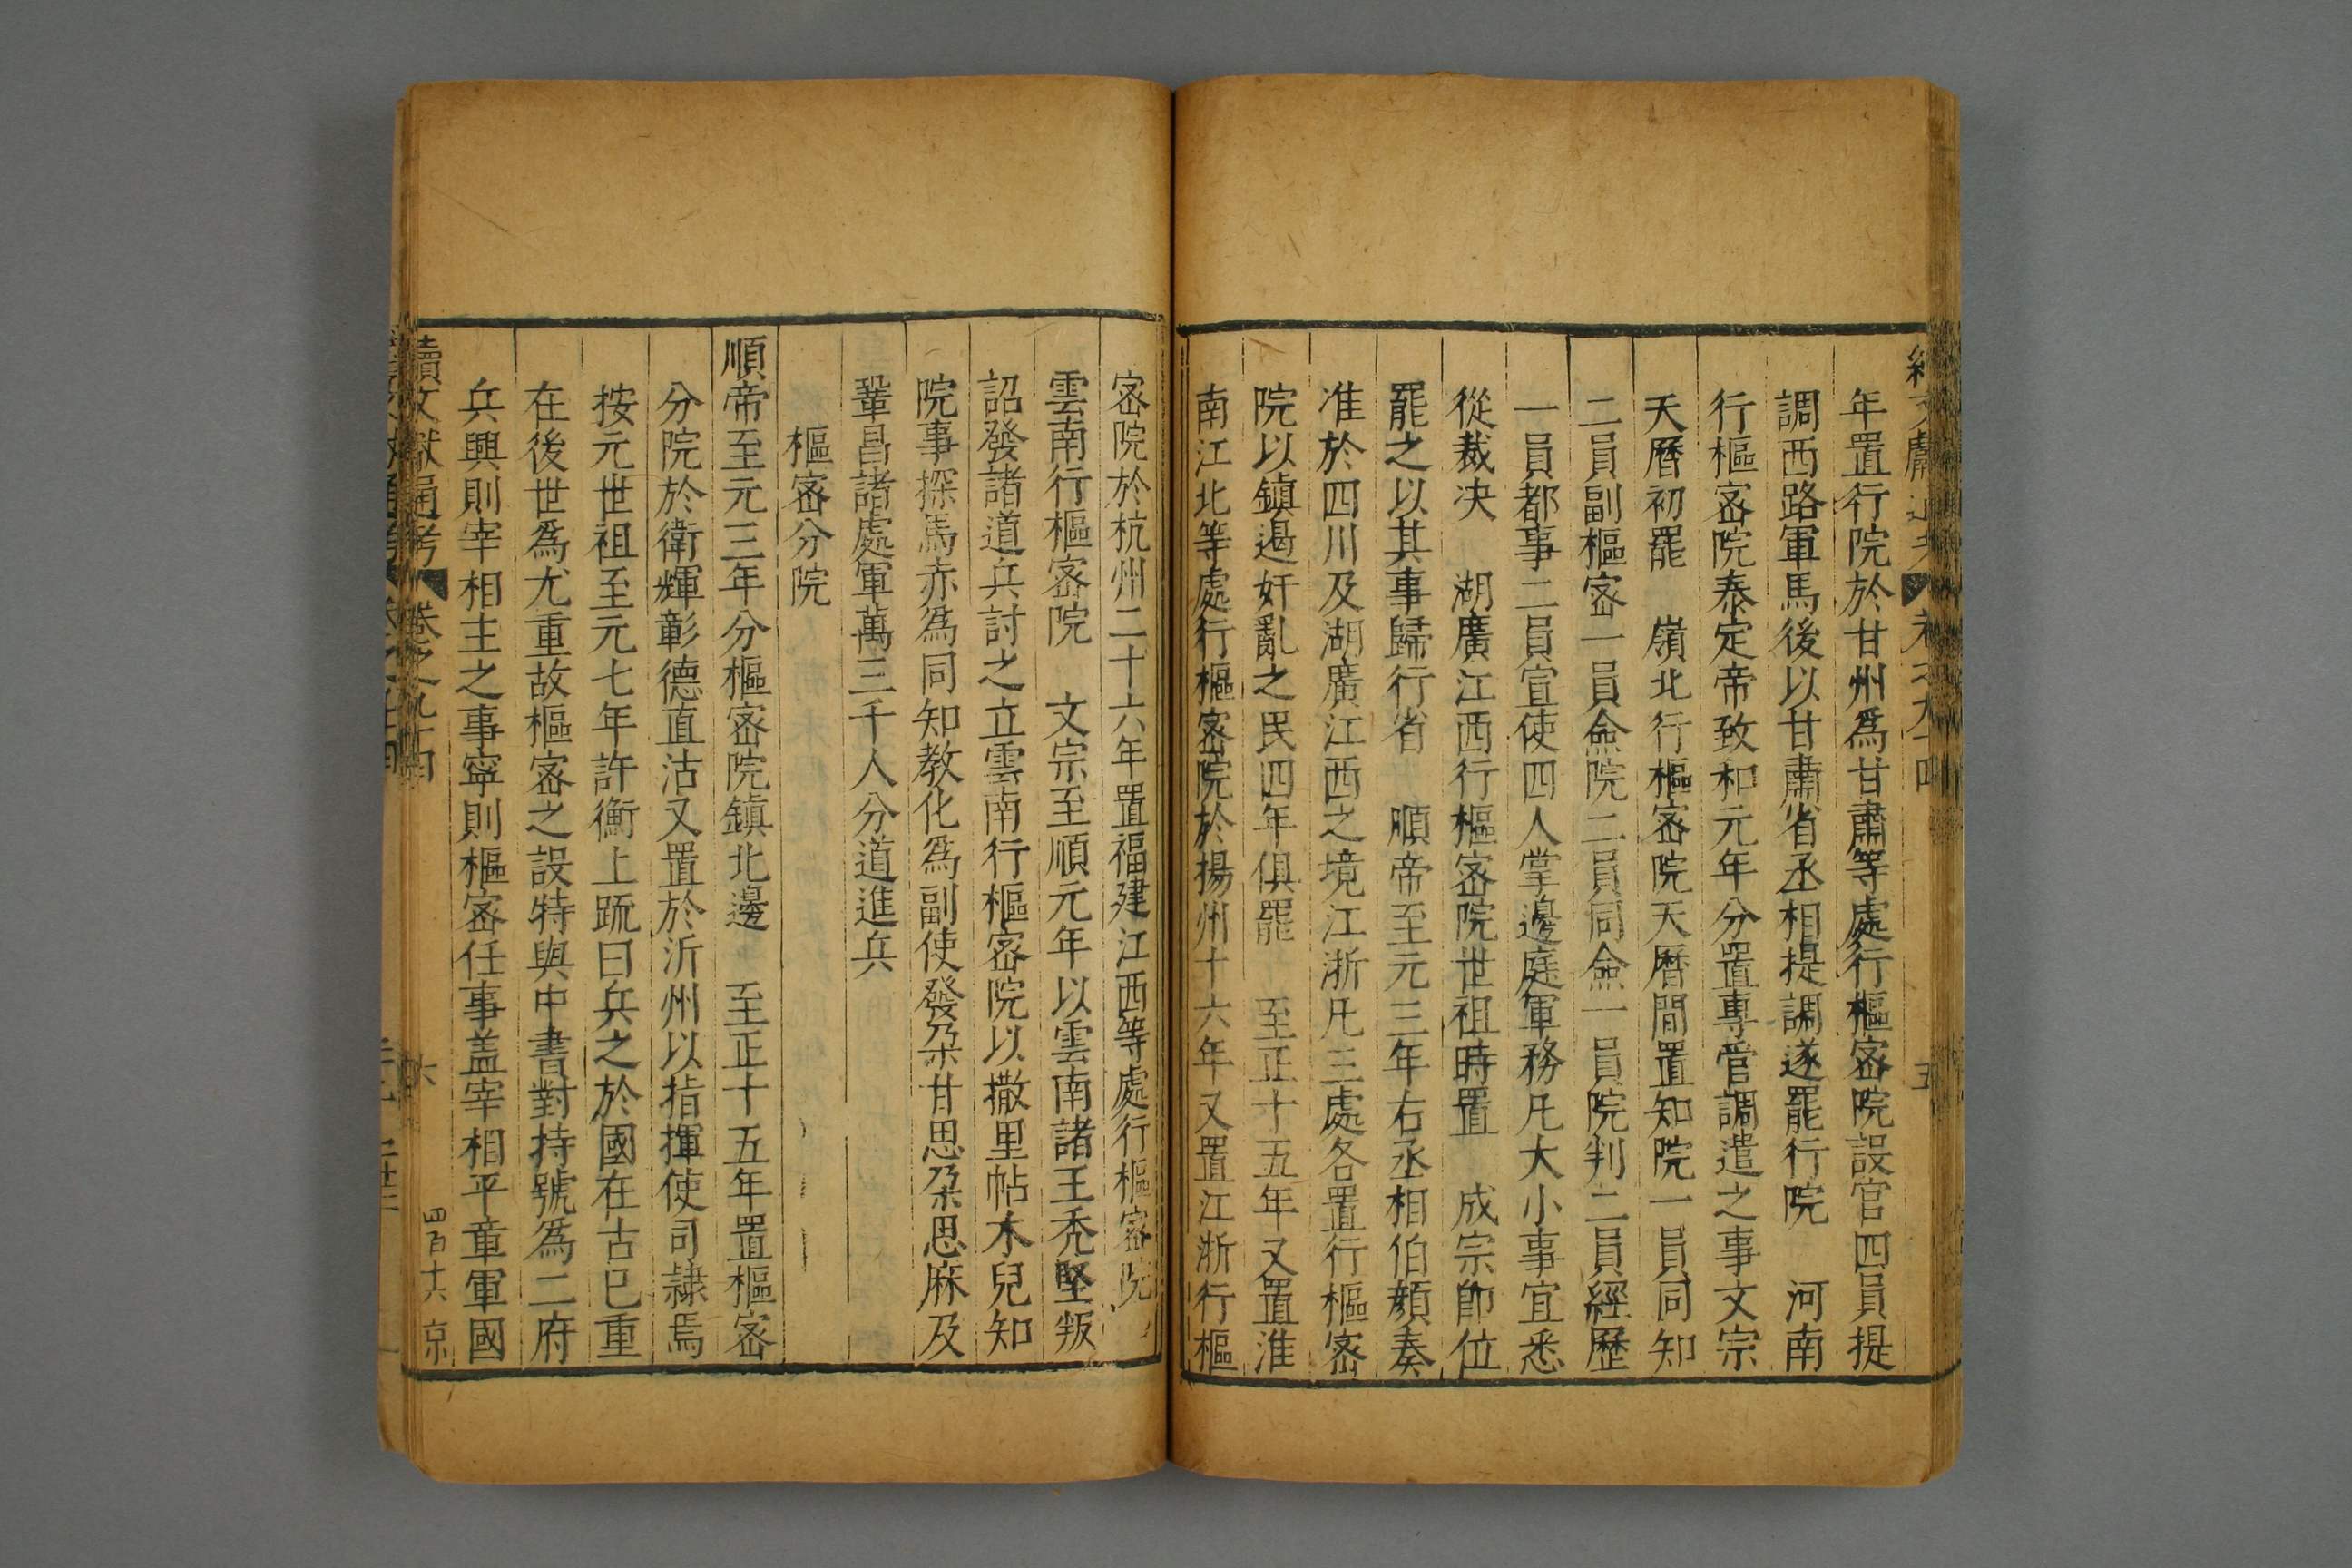 年置行院於甘州爲甘肅等處行樞密院設官四員提
調西路軍馬後以甘肅省丞相提調遂罷行院　河南
行樞密院泰定帝致和元年分置專管調遣之事文宗
天曆初罷　嶺北行樞密院天曆間置知院一員同知
二員副樞密一員僉院二員同僉一員院判二員經歷
一員都事二員宣使四人掌邊庭軍務凡大小事宜悉
從裁决　湖廣江西行樞密院世祖時置　成宗卽位
罷之以其事歸行省　順帝至元三年右丞相伯顏奏
准於四川及湖廣江西之境江浙凡三處各置行樞密
院以鎮遏奸亂之民四年俱罷　至正十五年又置淮
南江北等處行樞密院於揚州十六年又置江浙行樞
密院於杭州二十六年置福建江西等處行樞密院
雲南行樞密院　文宗至順元年以雲南諸王禿堅叛
詔發諸道兵討之立雲南行樞密院以撒里帖木兒知
院事探馬赤爲同知教化爲副使發朶甘思朶思麻及
鞏昌諸處軍萬三千人分道進兵
樞密分院
順帝至元三年分樞密院鎮北邊　至正十五年置樞密
分院於衛輝彰德直沽又置於沂州以指揮使司隷焉
按元世祖至元七年許衡上疏曰兵之於國在古已重
在後世爲尤重故樞密之設特與中書對持號爲二府
兵興則宰相主之事寧則樞密任事盖宰相平章軍國
續文獻通考　卷之九十四　六　四百十六　京